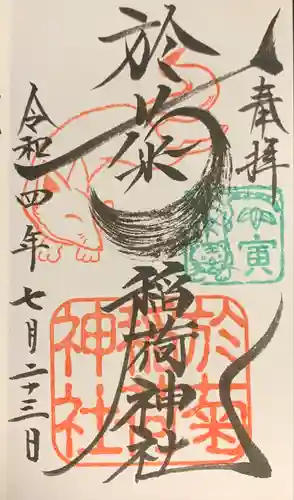 奉拝
於菊
稲荷神社
令和四年七月二十三日
於菊
稲荷
神社
壬寅